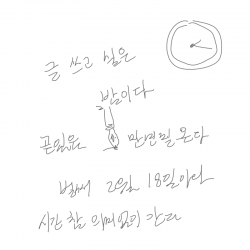 글 쓰고 싶은
밤이다
끈일 만년필 온다
벌써 2월 18일이다
시간 참 의미없이 간다